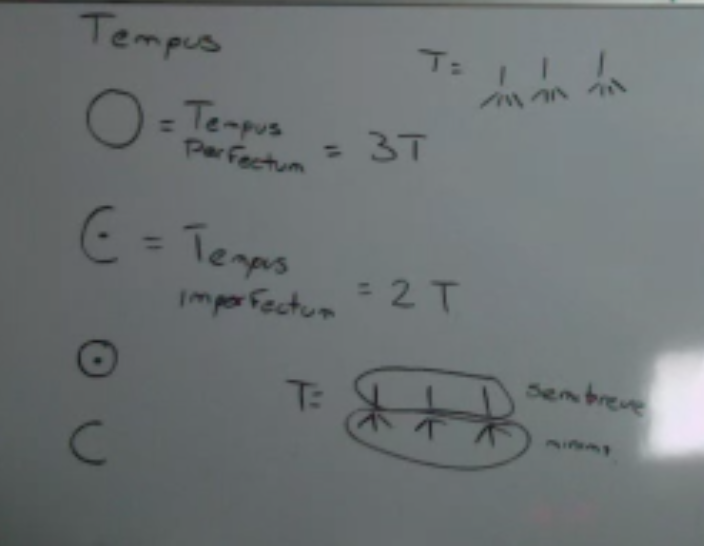 Tempus
T=
= Tempus
Perfectum = 3T
= Tempus
imperfectum = 2 T
T= semibreve
minims